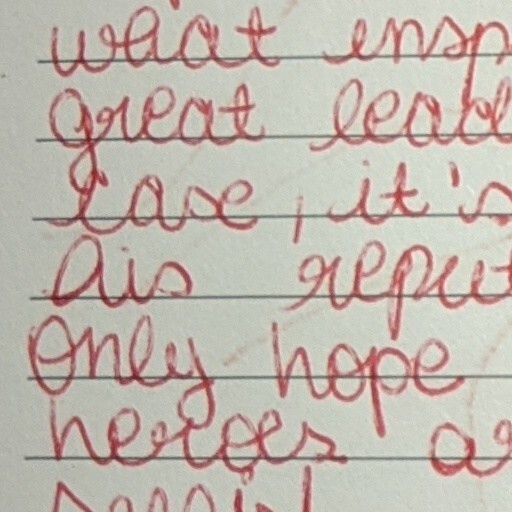 what insp
great lead
case, it's
his reput
only hope
heroes a